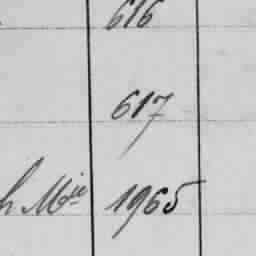 616
617
h Mie 1965